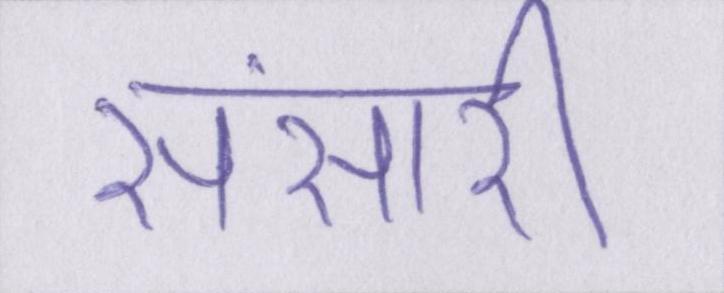 संसारी